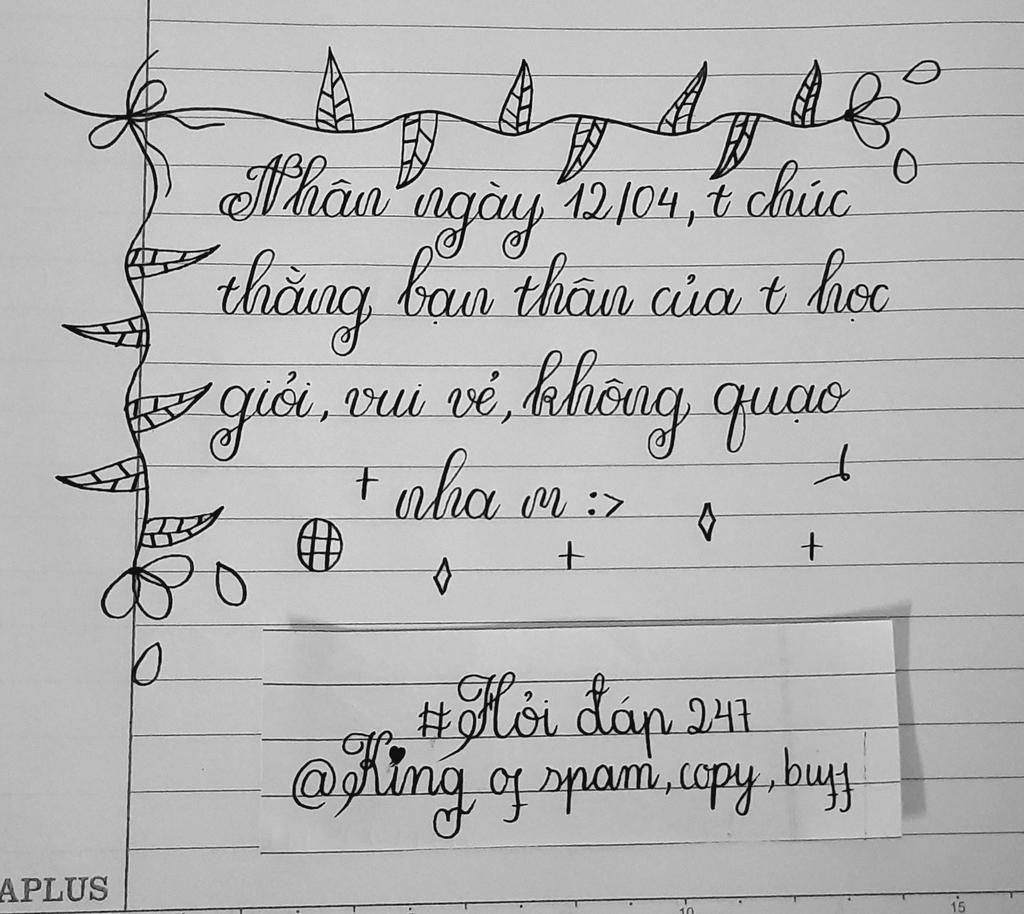 Nhân ngày 12/04, t chúc
thằng bạn thân của t học
giỏi, vui vẻ, không quạo
nha m :>
#Hỏi đáp 247
@King of spam, copy, buff
APLUS
10
15